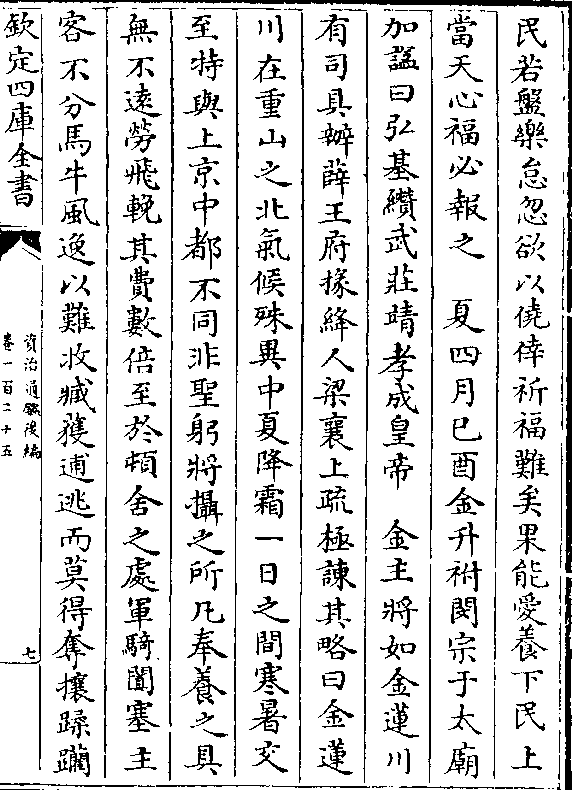 民若盤樂怠忽欲以僥倖祈福難矣果能愛養下民上
當天心福必報之　夏四月己酉金升祔閔宗于太廟
加諡曰弘基纘武莊靖孝成皇帝　金主將如金蓮川
有司具辦薛王府掾絳人梁襄上疏極諫其略曰金蓮
川在重山之北氣候殊異中夏降霜一日之間寒暑交
至特與上京中都不同非聖躬將攝之所凡奉養之具
無不遠勞飛輓其費數倍至於頓舍之處軍騎闐塞主
客不分馬牛風逸以難收臧獲逋逃而莫得奪攘蹂躪
欽定四庫全書
資治通鑑後編
卷一百二十五
七